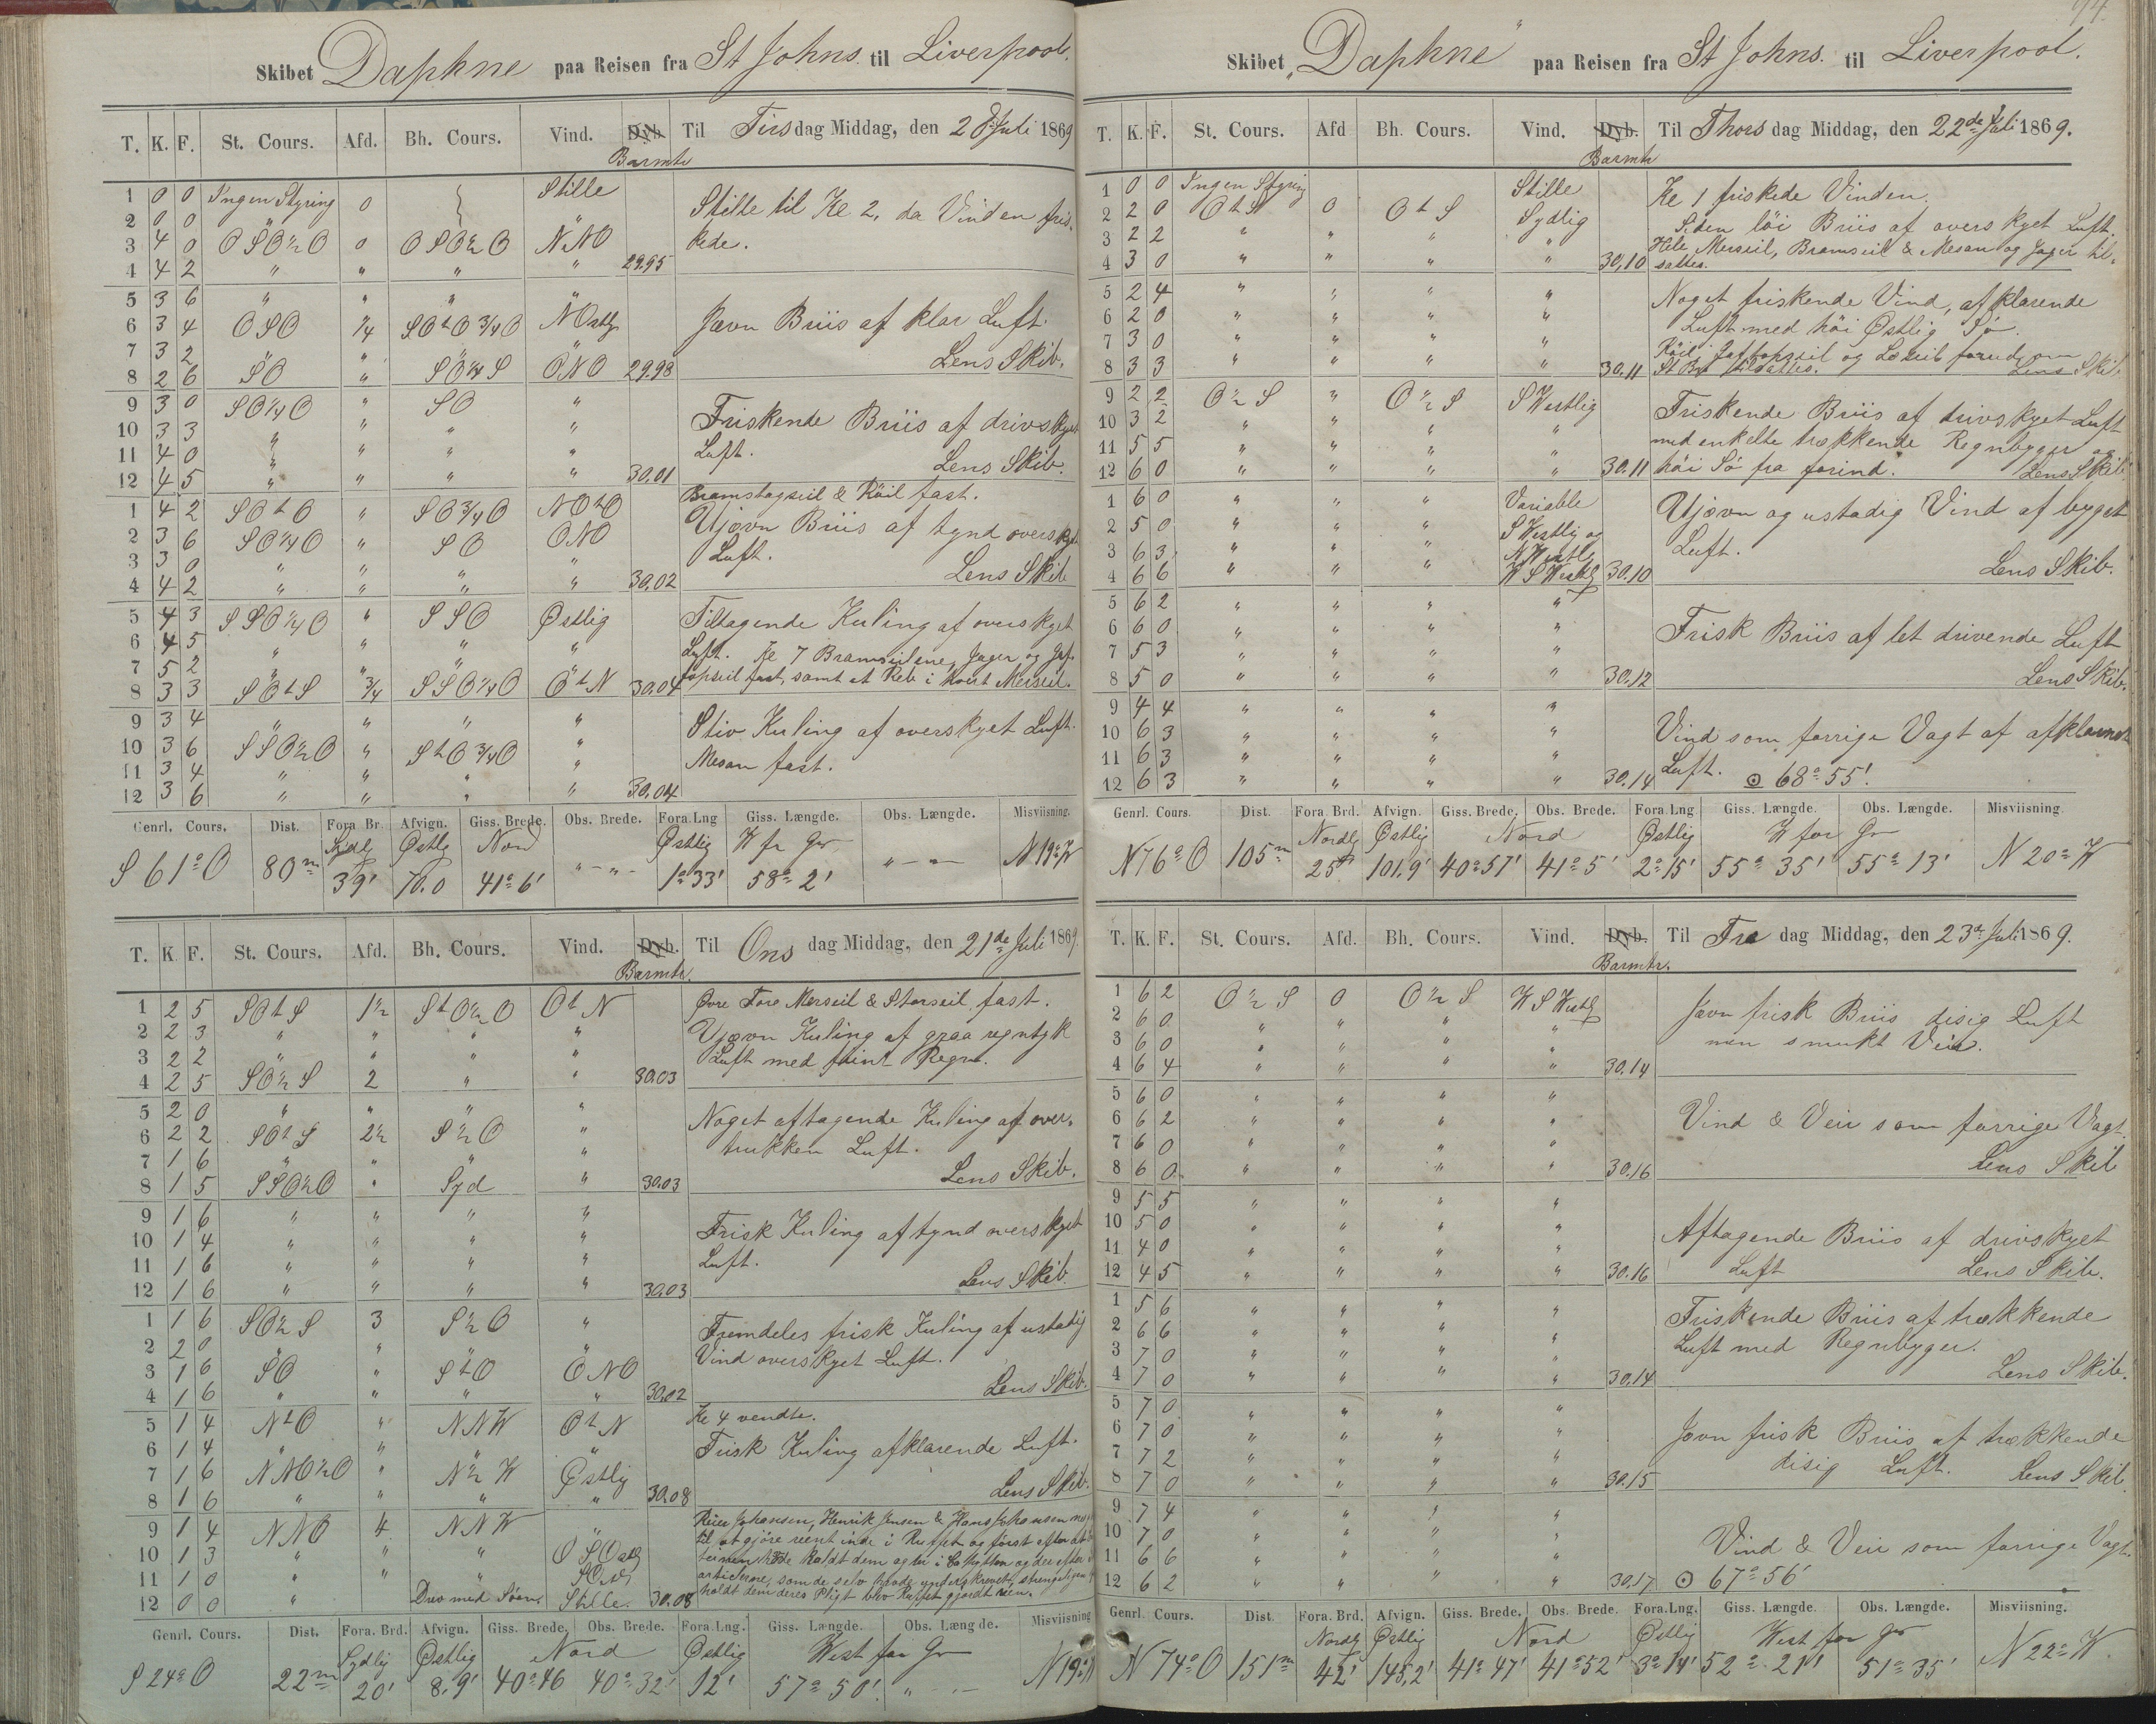 Skibet Daphne paa Reisen fra St Johns. til Liverpool.
T. K. F. St. Cours. Afd. Bh. Cours. Vind. Dyb. Til Tirsdag Middag, den 20 Juli 1869
Barmtr
1 0 0 Ingen Styring 0 Stille
2 0 0 " "
3 4 0 OSO½O 0 OSO½O NNO
4 4 2 " " " " 29.95
Stille til Kl 2, da Vinden fris-
kede.
5 3 6 " " "
6 3 4 OSO ¼ SOtO¾O NOstlg
7 3 2 " " "
8 2 6 SO " SO¼S ONO 29.98
Jævn Briis af klar Luft.
Lens Skib.
9 3 0 SO¼O " SO "
10 3 3 " " " "
11 4 0 " " " "
12 4 5 " " " " 30.01
Friskende Briis af drivskyet
Luft. Lens Skib.
1 4 2 SOtO " SO¾O NOtO
2 3 6 SO¼O " SO ONO
3 3 0 " " " "
4 4 2 " " " " 30.02
Bramstagseil & Röil fast.
Ujævn Briis af tynd overskyet
Luft.
Lens Skib
5 4 3 SSO¼O " SSO Østlig
6 4 5 " " " "
7 5 2 " " " "
8 3 3 SOtS ¾ SSO¼O OtN 30.04
Tiltagende Kuling af overskyet
Luft. Kl 7 Bramseilene, Jager og Gaf-
topseil fast, samt et Reb i hvert Merseil.
9 3 4 " " " "
10 3 6 SSO½O " StO¾O "
11 3 4 " " " "
12 3 6 " " " " 30.04
Stiv Kuling af overskyet Luft.
Mesan fast.
Genrl. Cours. Dist. Fora. Br. Afvign. Giss. Brede. Obs. Brede. Fora. Lng Giss. Længde. Obs. Længde. Misviisning.
Sydl Østlg Nord Østlig W fr Gr
S 61° O 80m 39' 70.0 41° 6' " — " — 1° 33' 58° 2' " — " N 19° W
T. K. F. St. Cours. Afd. Bh. Cours. Vind. Dyb. Til Onsdag Middag, den 21de Juli 1869
Barmtr.
1 2 5 SOtS 1½ StO½O OtN
2 2 3 " " " "
3 2 2 " " " "
4 2 5 SO½S 2 " " 30.03
Øvre Fore Merseil & Storseil fast.
Ujævn Kuling af graa regntyk
Luft med fiint Regn.
5 2 0 " " " "
6 2 2 SOtS 2½ S½O "
7 1 6 " " " "
8 1 5 SSO½O " Syd " 30.03
Noget aftagende Kuling af over-
trukken Luft.
Lens Skib.
9 1 6 " " " "
10 1 4 " " " "
11 1 6 " " " "
12 1 6 " " " " 30.03
Frisk Kuling af tynd overskyet
Luft.
Lens Skib.
1 1 6 SO½S 3 S½O "
2 2 0 " " " "
3 1 6 SO " StO ONO
4 1 6 " " " " 30.02
Fremdeles frisk Kuling af ustadig
Vind overskyet Luft.
Lens Skib.
5 1 4 NtO " NNW OtN
6 1 4 " " " "
7 1 6 NNO½O " N½W Østlig
8 1 6 " " " " 30.08
Kl 4 vendte.
Frisk Kuling afklarende Luft.
Lens Skib.
9 1 4 NNO 4 NNW "
10 1 3 " " " OSOstlg
11 1 0 " " "
12 0 0 " Drev med Søen. Stille. 30.08
Johansen, Henrik Jensen & Hans Johansen
til at gjöre reent inde i Ruffet og först efter at
havde kaldt dem agter i Cahytten og der efter
articlerne, som de selv havde underskrevet, strengeligen
holdt dem deres Pligt blev Ruffet gjordt reen.
Genrl. Cours. Dist. Fora. Brd. Afvign. Giss. Brede. Obs. Brede. Fora. Lng. Giss. Længde. Obs. Længde. Misviisning
Sydlig Østlig Nord Østlig West for Gr
S 24° O 22m 20' 8.9' 40° 46 40° 32' 12' 57° 50'. " — N 19° W
Skibet „Daphne" paa Reisen fra St Johns. til Liverpool.
T. K. F. St. Cours. Afd Bh. Cours. Vind. Dyb. Til Thorsdag Middag, den 22de Juli 1869.
Barmtr
1 0 0 Ingen Styring Stille
2 2 0 OtS 0 OtS Sydlig
3 2 2 " " " "
4 3 0 " " " " 30,10
Kl 1 friskede Vinden.
Siden löi Briis af overskyet Luft.
Hele Merseil, Bramseil & Mesan og Jager til-
sattes.
5 2 4 " " " "
6 2 0 " " " "
7 3 0 " " " "
8 3 3 " " " " 30.11
Noget friskende Vind, afklarende
Luft med höi Østlig Sö.
Röil, Gaftopseil og Læseil forud om
St Bd tilsattes. Lens Skib.
9 2 2 O½S " O½S SWestlig
10 3 2 " " " "
11 5 5 " " " "
12 6 0 " " " " 30.11
Friskende Briis af drivskyet Luft
med enkelte trækkende Regnbyger og
höi Sö fra forind. Lens Skib
1 6 0 " " " Variable
2 5 0 " " " SWestlig og
3 6 3 " " " NWestlg
4 6 6 " " " WSWestlg 30.10
Ujævn og ustadig Vind af byget
Luft.
Lens Skib.
5 6 2 " " " "
6 6 0 " " " "
7 5 3 " " " "
8 5 0 " " " " 30.12
Frisk Briis af let drivende Luft
Lens Skib.
9 4 4 " " " "
10 6 3 " " " "
11 6 3 " " " "
12 6 3 " " " " 30.14
Vind som forrige Vagt af afklarnet
Luft. ⊙ 68° 55'.
Genrl. Cours. Dist. Fora. Brd. Afvign. Giss. Brede. Obs. Brede. Fora. Lng Giss. Længde. Obs. Længde. Misviisning
Nordlg Østlig Nord Østlig W for Gr
N 76° O 105m 25' 101.9' 40° 57' 41° 5' 2° 15' 55° 35' 55° 13' N 20° W
T. K. F. St. Cours. Afd. Bh. Cours. Vind. Dyb. Til Fredag Middag, den 23de Juli 1869.
Barmtr.
1 6 2 O½S 0 O½S WSWestlg
2 6 0 " " " "
3 6 0 " " " "
4 6 4 " " " " 30.14
Jævn frisk Briis disig Luft
men smukt Veir.
5 6 0 " " " "
6 6 2 " " " "
7 6 0 " " " "
8 6 0 " " " " 30.16
Vind & Veir som forrige Vagt.
Lens Skib
9 5 5 " " " "
10 5 0 " " " "
11 4 0 " " " "
12 4 5 " " " " 30.16
Aftagende Briis af drivskyet
Luft Lens Skib.
1 5 6 " " " "
2 6 6 " " " "
3 7 0 " " " "
4 7 0 " " " " 30.14
Friskende Briis af trækkende
Luft med Regnbyger.
Lens Skib.
5 7 0 " " " "
6 7 0 " " " "
7 7 2 " " " "
8 7 0 " " " " 30.15
Jævn frisk Briis af trækkende
disig Luft. Lens Skib.
9 7 4 " " " "
10 7 0 " " " "
11 6 6 " " " "
12 6 2 " " " " 30.17
Vind & Veir som forrige Vagt.
⊙ 67° 56'
Genrl. Cours. Dist. Fora. Brd. Afvign. Giss. Brede. Obs. Brede. Fora. Lng. Giss. Længde. Obs. Længde. Misviisning.
Nordlg Østlig Nord Østlig West for Gr
N 74° O 151m 42' 145,2' 41° 47' 41° 52' 3° 14' 52° 21' 51° 35' N 22° W.